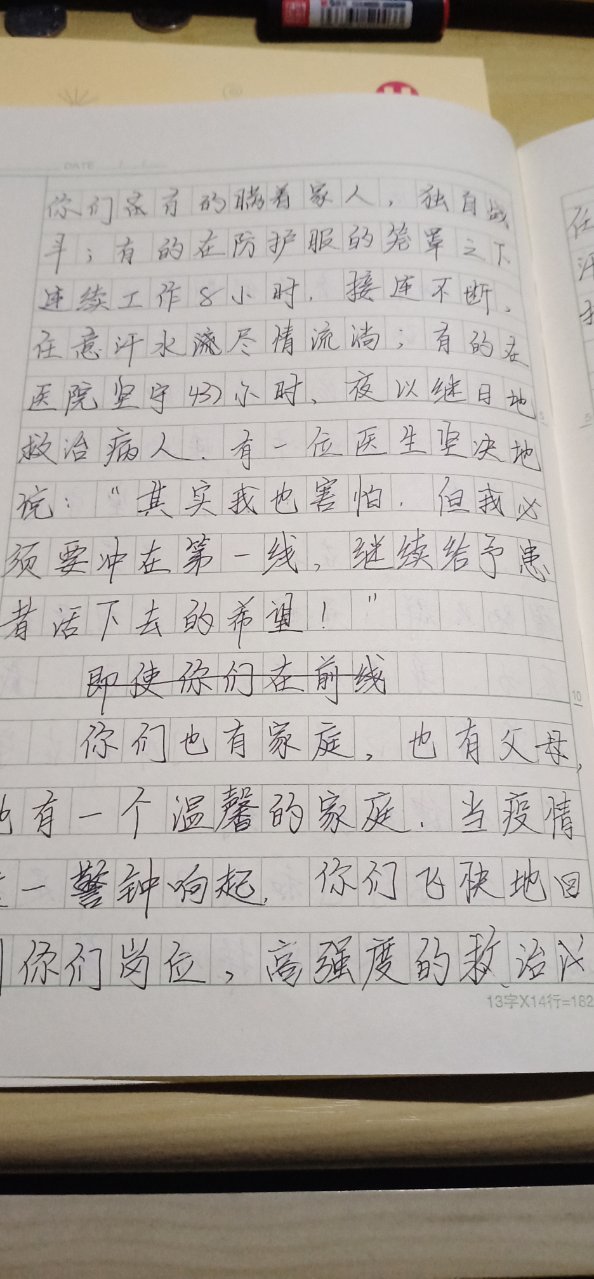 DATE
你们有的瞒着家人，独自战
斗；有的在防护服的笼罩之下
连续工作8小时，接连不断，
任意汗水流尽情流淌；有的在
医院坚守43小时、夜以继日地
救治病人．有一位医生坚决地
说："其实我也害怕．但我必
须要冲在第一线，继续给予患
者活下去的希望！"
即使你们在前线
你们也有家庭，也有父母，
也有一个温馨的家庭．当疫情
一警钟响起，你们飞快地回
你们岗位，高强度的救治
13字X14行=182
5
10